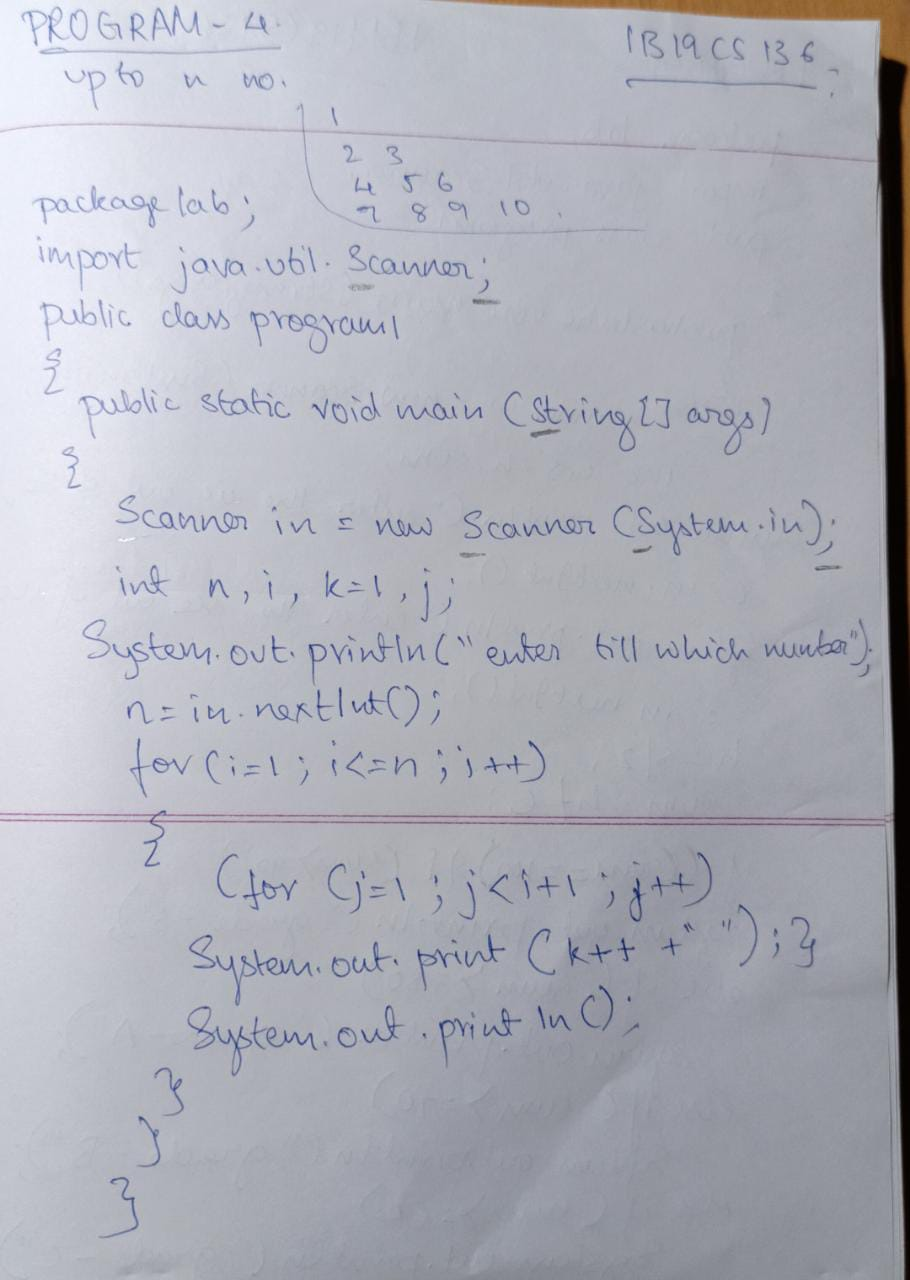 PROGRAM - 4.
1B19CS136.
upto n no.
1
2 3
4 5 6
7 8 9 10.
package lab;
import java.util.Scanner;
public class program1
{
public static void main (String [] args)
{
Scanner in = new Scanner (System.in);
int n, i, k=1, j;
System.out.println("enter till which number");
n = in.nextInt();
for (i=1; i<=n; i++)
{
(for (j=1; j<i+1; j++)
System.out.print (k++ +" "); }
System.out.println();
}
}
}